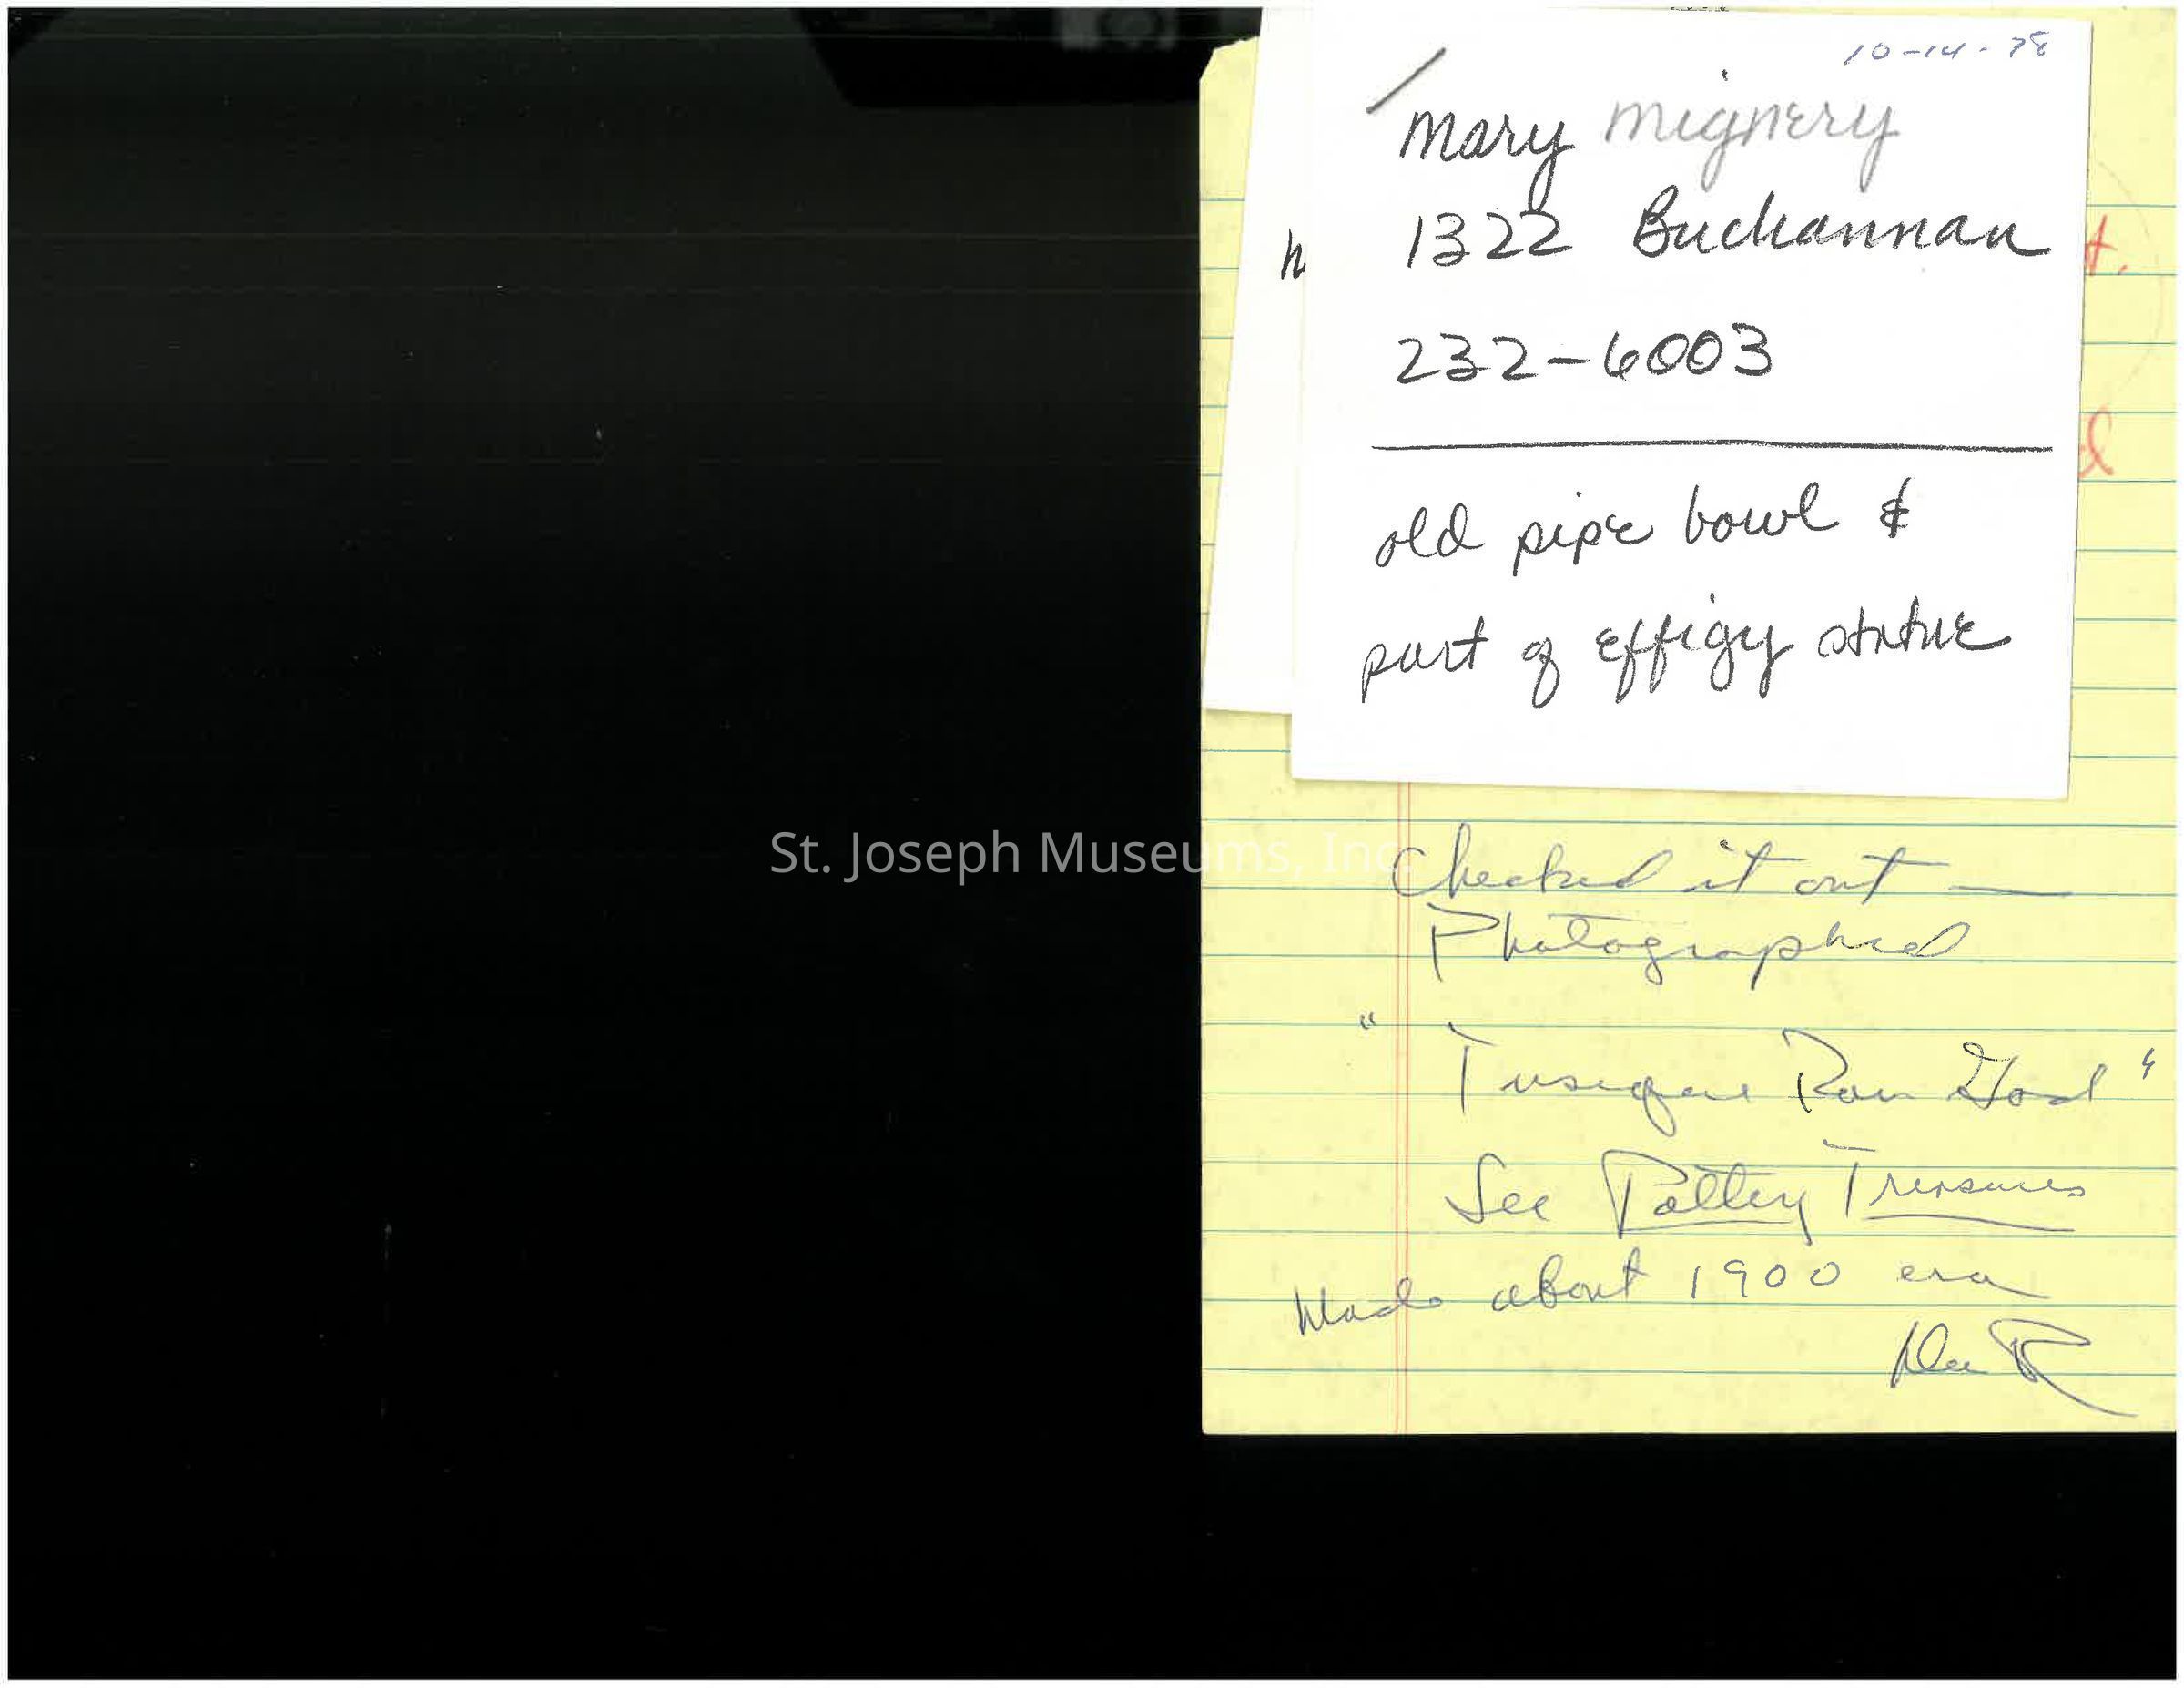 10-14-78
Mary Mignery
1322 Buchannan
232-6003
old pipe bowl &
part of effigy statue
h
t.
d
St. Joseph Museums, Inc.
Checked it out —
Photographed
"Tusuque Rain God"
See Pottery Treasures
Made about 1900 era